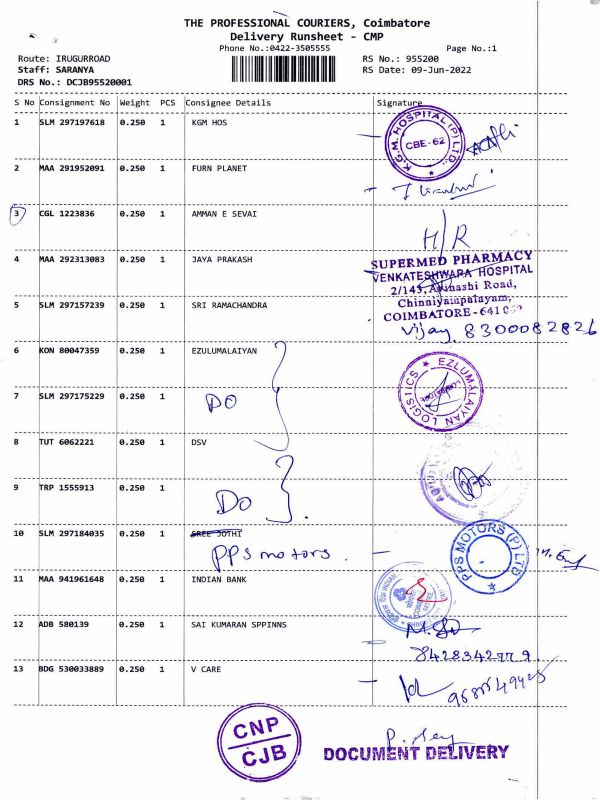 THE PROFESSIONAL COURIERS, Coimbatore
Delivery Runsheet - CMP
Phone No.:0422-3505555 Page No.:1
Route: IRUGURROAD RS No.: 955200
Staff: SARANYA RS Date: 09-Jun-2022
DRS No.: DCJB95520001
S No Consignment No Weight PCS Consignee Details Signature
1 SLM 297197618 0.250 1 KGM HOS
K.G.M. HOSPITAL (P) LTD.,
CBE-62
2 MAA 291952091 0.250 1 FURN PLANET
3 CGL 1223836 0.250 1 AMMAN E SEVAI
H/R
4 MAA 292313083 0.250 1 JAYA PRAKASH
SUPERMED PHARMACY
VENKATESHWARA HOSPITAL
2/143, Avinashi Road,
Chinniyampalayam,
COIMBATORE-641
5 SLM 297157239 0.250 1 SRI RAMACHANDRA
Vijay 8300082826
6 KON 80047359 0.250 1 EZULUMALAIYAN
EZLUMALAIYAN LOGISTICS
COIMBATORE
7 SLM 297175229 0.250 1 DO
8 TUT 6062221 0.250 1 DSV
9 TRP 1555913 0.250 1 DO
10 SLM 297184035 0.250 1 SREE JOTHI
PPS motors.
PPS MOTORS (P) LTD
11 MAA 941961648 0.250 1 INDIAN BANK
12 ADB 580139 0.250 1 SAI KUMARAN SPPINNS
8428342779
13 BDG 530033889 0.250 1 V CARE
CNP
CJB
DOCUMENT DELIVERY